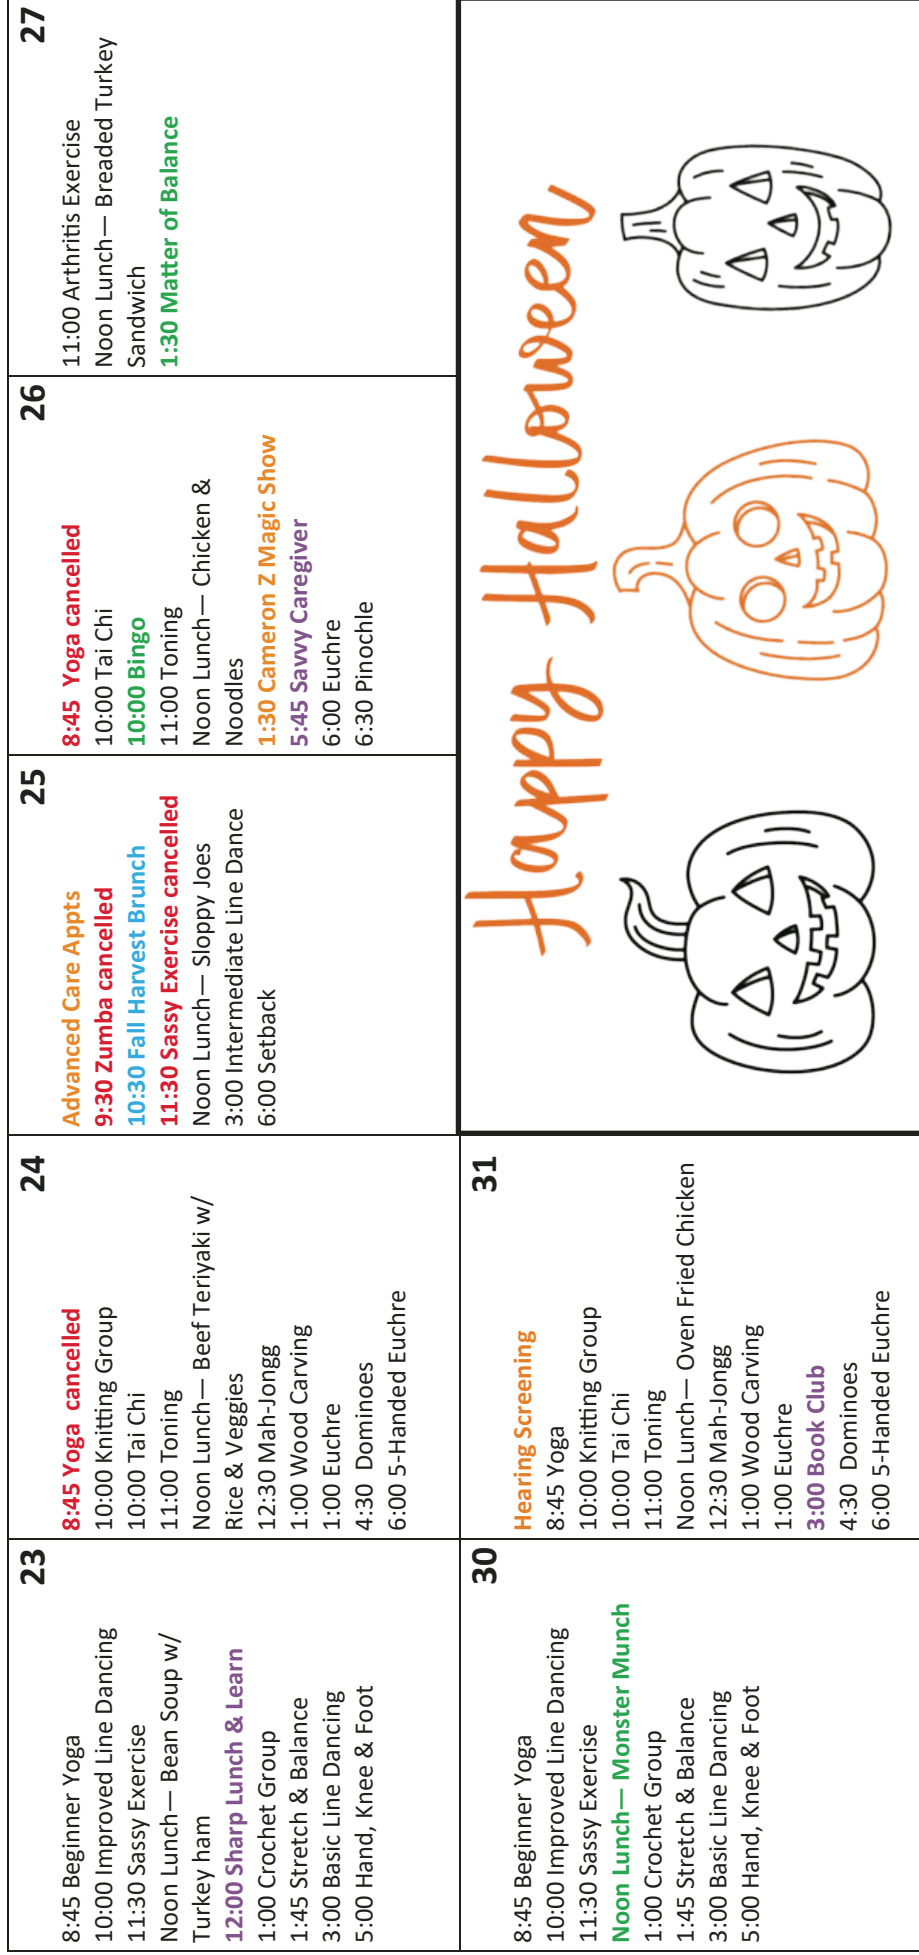 23
8:45 Beginner Yoga
10:00 Improved Line Dancing
11:30 Sassy Exercise
Noon Lunch— Bean Soup w/
Turkey ham
12:00 Sharp Lunch & Learn
1:00 Crochet Group
1:45 Stretch & Balance
3:00 Basic Line Dancing
5:00 Hand, Knee & Foot
24
8:45 Yoga cancelled
10:00 Knitting Group
10:00 Tai Chi
11:00 Toning
Noon Lunch— Beef Teriyaki w/
Rice & Veggies
12:30 Mah-Jongg
1:00 Wood Carving
1:00 Euchre
4:30 Dominoes
6:00 5-Handed Euchre
25
Advanced Care Appts
9:30 Zumba cancelled
10:30 Fall Harvest Brunch
11:30 Sassy Exercise cancelled
Noon Lunch— Sloppy Joes
3:00 Intermediate Line Dance
6:00 Setback
26
8:45 Yoga cancelled
10:00 Tai Chi
10:00 Bingo
11:00 Toning
Noon Lunch— Chicken &
Noodles
1:30 Cameron Z Magic Show
5:45 Savvy Caregiver
6:00 Euchre
6:30 Pinochle
27
11:00 Arthritis Exercise
Noon Lunch— Breaded Turkey
Sandwich
1:30 Matter of Balance
30
8:45 Beginner Yoga
10:00 Improved Line Dancing
11:30 Sassy Exercise
Noon Lunch— Monster Munch
1:00 Crochet Group
1:45 Stretch & Balance
3:00 Basic Line Dancing
5:00 Hand, Knee & Foot
31
Hearing Screening
8:45 Yoga
10:00 Knitting Group
10:00 Tai Chi
11:00 Toning
Noon Lunch— Oven Fried Chicken
12:30 Mah-Jongg
1:00 Wood Carving
1:00 Euchre
3:00 Book Club
4:30 Dominoes
6:00 5-Handed Euchre
Happy Halloween